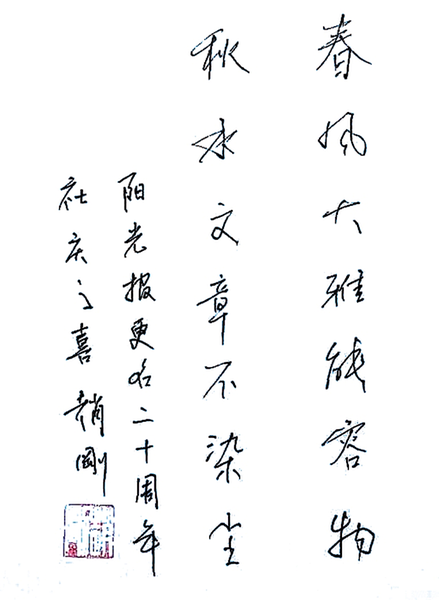 春风大雅能容物
秋水文章不染尘
阳光报更名二十周年
社庆之喜 赵刚